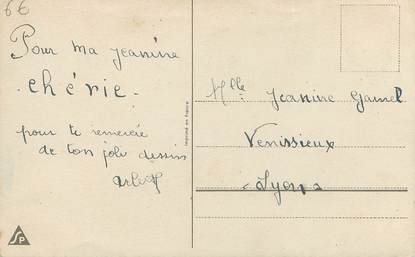 6€
Pour ma Jeanine
chérie.
pour te remercié
de ton joli dessin
Mlle Jeanine
Venissieux
Lyon
Imprimé en France
SP